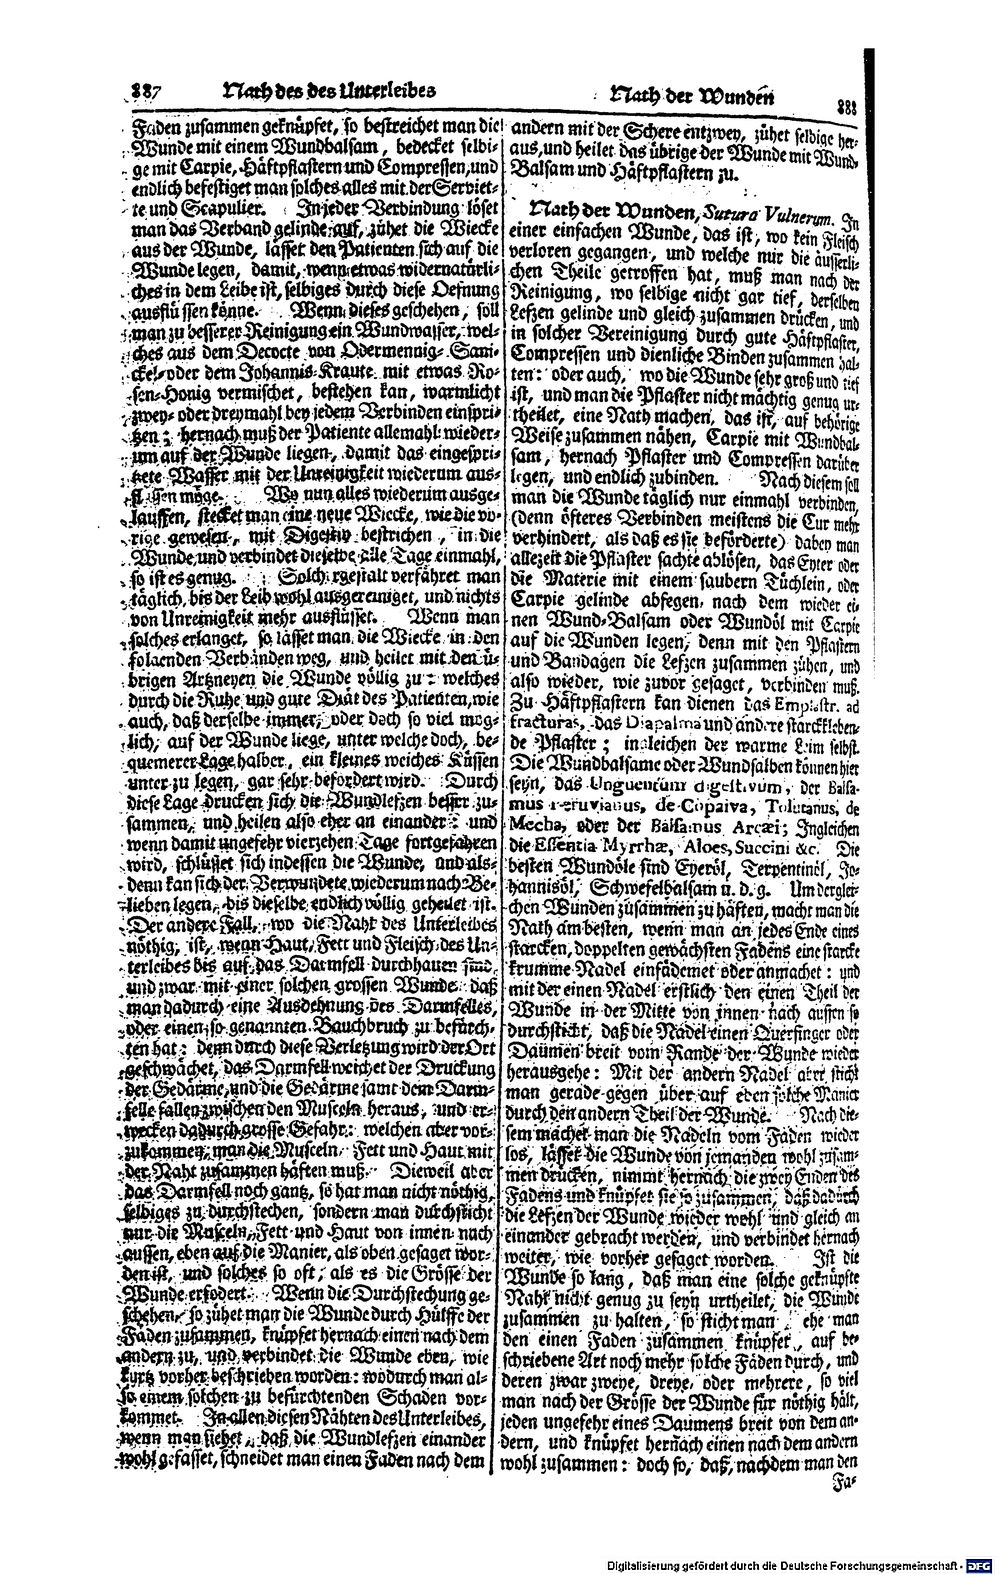 887 Nath des des Unterleibes
Nath der Wunden 888
Faden zusammen geknüpfet, so bestreichet man die
Wunde mit einem Wundbalsam, bedecket selbi-
ge mit Carpie, Häftpflastern und Compressen, und
endlich befestiget man solches alles mit der Serviet-
te und Scapulier. In jeder Verbindung löset
man das Verband gelinde auf, zühet die Wiecke
aus der Wunde, lässet den Patienten sich auf die
Wunde legen, damit, wenn etwas widernatürli-
ches in dem Leibe ist, selbiges durch diese Oefnung
ausflüssen könne. Wenn dieses geschehen, soll
man zu besserer Reinigung ein Wundwasser, wel-
ches aus dem Decocte von Odermennig- Sani-
ckel- oder dem Johannis-Kraute mit etwas Ro-
sen-Honig vermischet, bestehen kan, warmlicht
zwey- oder dreymahl bey jedem Verbinden einspri-
tzen; hernach muß der Patiente allemahl wieder-
um auf der Wunde liegen, damit das eingespri-
tzete Wasser mit der Unreinigkeit wiederum aus-
flüssen möge. Wo nun alles wiederum ausge-
lauffen, stecket man eine neue Wiecke, wie die vo-
rige gewesen, mit Digestiv bestrichen, in die
Wunde und verbindet dieselbe alle Tage einmahl,
so ist es genug. Solchergestalt verfähret man
täglich, bis der Leib wohl ausgereiniget, und nichts
von Unreinigkeit mehr ausflüsset. Wenn man
solches erlanget, so lässet man die Wiecke in den
folgenden Verbänden weg, und heilet mit den ü-
brigen Artzneyen die Wunde völlig zu: welches
durch die Ruhe und gute Diät des Patienten, wie
auch, daß derselbe immer, oder doch so viel mög-
lich, auf der Wunde liege, unter welche doch, be-
quemerer Lage halber, ein kleines weiches Küssen
unter zu legen, gar sehr befördert wird. Durch
diese Lage drucken sich die Wundlefzen besser zu-
sammen, und heilen also eher an einander: und
wenn damit ungefehr vierzehen Tage fortgefahren
wird, schlüsset sich indessen die Wunde, und als-
denn kan sich der Verwundete wiederum nach Be-
lieben legen, bis dieselbe endlich völlig geheilet ist.
Der andere Fall, wo die Naht des Unterleibes
nöthig, ist, wenn Haut, Fett und Fleisch des Un-
terleibes bis auf das Darmfell durchhauen sind,
und zwar mit einer solchen grossen Wunde, daß
man dadurch eine Ausdehnung des Darmfelles,
oder einen so genannten Bauchbruch zu befürch-
ten hat: denn durch diese Verletzung wird der Ort
geschwächet, das Darmfell weichet der Druckung
der Gedärme, und die Gedärme samt dem Darm-
felle fallen zwischen den Muskeln heraus, und er-
wecken dadurch grosse Gefahr: welchen aber vor-
zukommen, man die Muskeln Fett und Haut mit
der Naht zusammen häften muß. Dieweil aber
das Darmfell noch gantz, so hat man nicht nöthig,
selbiges zu durchstechen, sondern man durchsticht
nur die Muskeln, Fett und Haut von innen nach
aussen, eben auf die Manier, als oben gesaget wor-
den ist, und solches so oft, als es die Grösse der
Wunde erfodert. Wenn die Durchstechung ge-
schehen, so zühet man die Wunde durch Hülffe der
Fäden zusammen, knüpfet hernach einen nach dem
andern zu, und verbindet die Wunde eben, wie
kurtz vorher beschrieben worden: wodurch man al-
so einem solchen zu befürchtenden Schaden vor-
kommet. In allen diesen Nähten des Unterleibes,
wenn man siehet, daß die Wundlefzen einander
wohl gefasset, schneidet man einen Faden nach dem
andern mit der Schere entzwey, zühet selbige her-
aus, und heilet das übrige der Wunde mit Wund-
Balsam und Häftpflastern zu.
Nath der Wunden, Sutura Vulnerum. In
einer einfachen Wunde, das ist, wo kein Fleisch
verloren gegangen, und welche nur die äusserli-
chen Theile getroffen hat, muß man nach der
Reinigung, wo selbige nicht gar tief, derselben
Lefzen gelinde und gleich zusammen drücken, und
in solcher Vereinigung durch gute Häftpflaster,
Compressen und dienliche Binden zusammen hal-
ten: oder auch, wo die Wunde sehr groß und tief
ist, und man die Pflaster nicht mächtig genug ur-
theilet, eine Nath machen, das ist, auf behörige
Weise zusammen nähen, Carpie mit Wundbal-
sam, hernach Pflaster und Compressen darüber
legen, und endlich zubinden. Nach diesem soll
man die Wunde täglich nur einmahl verbinden,
(denn öfteres Verbinden meistens die Cur mehr
verhindert, als daß es sie beförderte) dabey man
allezeit die Pflaster sachte ablösen, das Eyter oder
die Materie mit einem saubern Tüchlein, oder
Carpie gelinde abfegen, nach dem wieder ei-
nen Wund-Balsam oder Wundöl mit Carpie
auf die Wunden legen, denn mit den Pflastern
und Bandagen die Lefzen zusammen zühen, und
also wieder, wie zuvor gesaget, verbinden muß.
Zu Häftpflastern kan dienen das Emplastr. ad
fracturas, das Diapalma und andere starckkleben-
de Pflaster; ingleichen der warme Leim selbst.
Die Wundbalsame oder Wundsalben können hier
seyn, das Unguentum digestivum, der Balsa-
mus Peruvianus, de Copaiva, Tolutanus, de
Mecha, oder der Balsamus Arcæi; Ingleichen
die Essentia Myrrhæ, Aloes, Succini &c. Die
besten Wundöle sind Eyeröl, Terpentinöl, Jo-
hannisöl, Schwefelbalsam u. d. g. Um derglei-
chen Wunden zusammen zu häften, macht man die
Nath am besten, wenn man an jedes Ende eines
starcken, doppelten gewächsten Fadens eine starcke
krumme Nadel einfädemet oder anmachet: und
mit der einen Nadel erstlich den einen Theil der
Wunde in der Mitte von innen nach aussen so
durchsticht, daß die Nadel einen Querfinger oder
Daumen breit vom Rande der Wunde wieder
herausgehe: Mit der andern Nadel aber sticht
man gerade gegen über auf eben solche Manier
durch den andern Theil der Wunde. Nach die-
sem machet man die Nadeln vom Faden wieder
los, lässet die Wunde von jemanden wohl zusam-
men drücken, nimmt hernach die zwey Enden des
Fadens und knüpfet sie so zusammen, daß dadurch
die Lefzen der Wunde wieder wohl und gleich an
einander gebracht werden, und verbindet hernach
weiter, wie vorher gesaget worden. Ist die
Wunde so lang, daß man eine solche geknüpfte
Naht nicht genug zu seyn urtheilet, die Wunde
zusammen zu halten, so sticht man, ehe man
den einen Faden zusammen knüpfet, auf be-
schriebene Art noch mehr solche Fäden durch, und
deren zwar zweye, dreye, oder mehrere, so viel
man nach der Grösse der Wunde für nöthig hält,
jeden ungefehr eines Daumens breit von dem an-
dern, und knüpfet hernach einen nach dem andern
wohl zusammen: doch so, daß, nachdem man den
Fa-
Digitalisierung gefördert durch die Deutsche Forschungsgemeinschaft - DFG